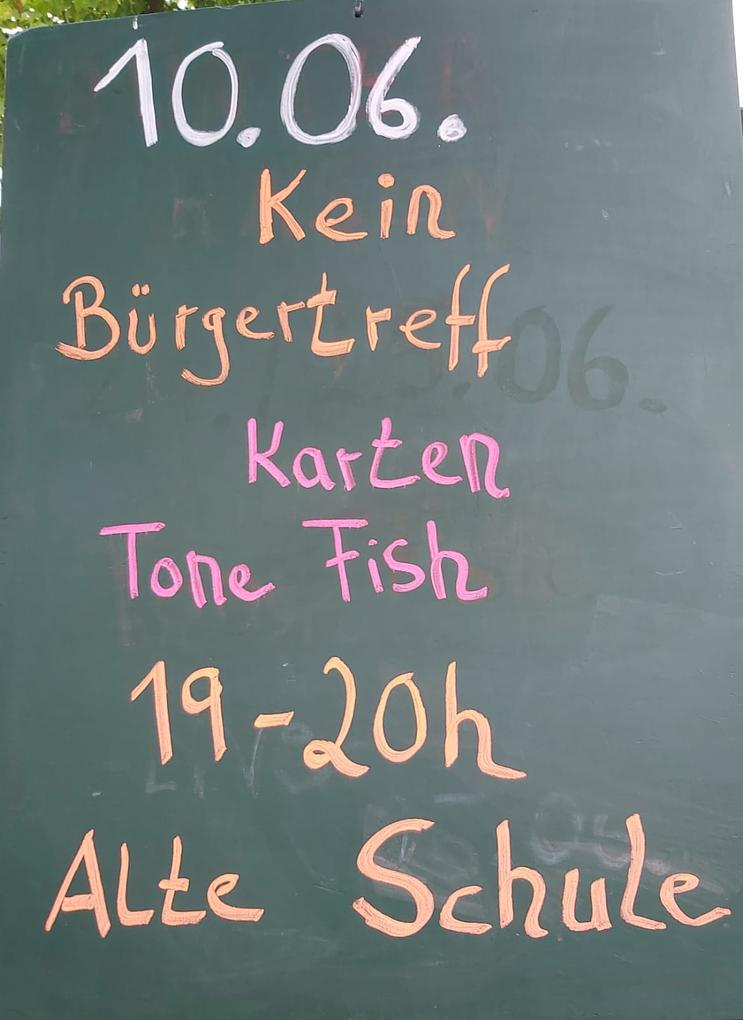 10.06.
Kein
Bürgertreff
Karten
Tone Fish
19-20h
Alte Schule